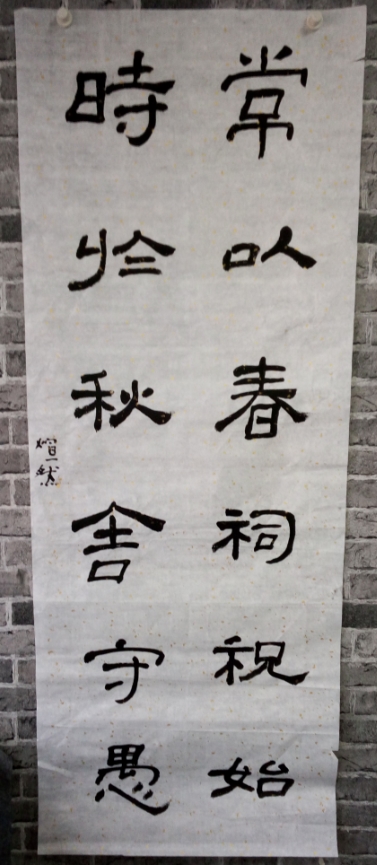 常以春祠祝始
時於秋舍守愚